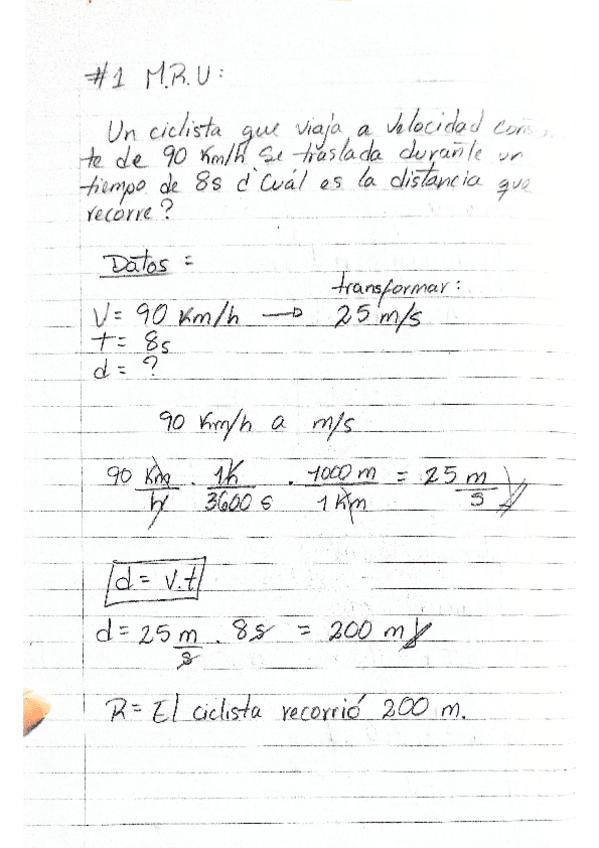 #1 M.R.U:
Un ciclista que viaja a velocidad cons
te de 90 Km/h se traslada durante un
tiempo de 8s ¿Cuál es la distancia que
recorre?
Datos =
transformar:
V= 90 Km/h → 25 m/s
t= 8s
d= ?
90 Km/h a m/s
90 Km/h . 1h/3600 s . 1000 m/1 Km = 25 m/s
d= v.t
d= 25 m/s . 8s = 200 m
R= El ciclista recorrió 200 m.